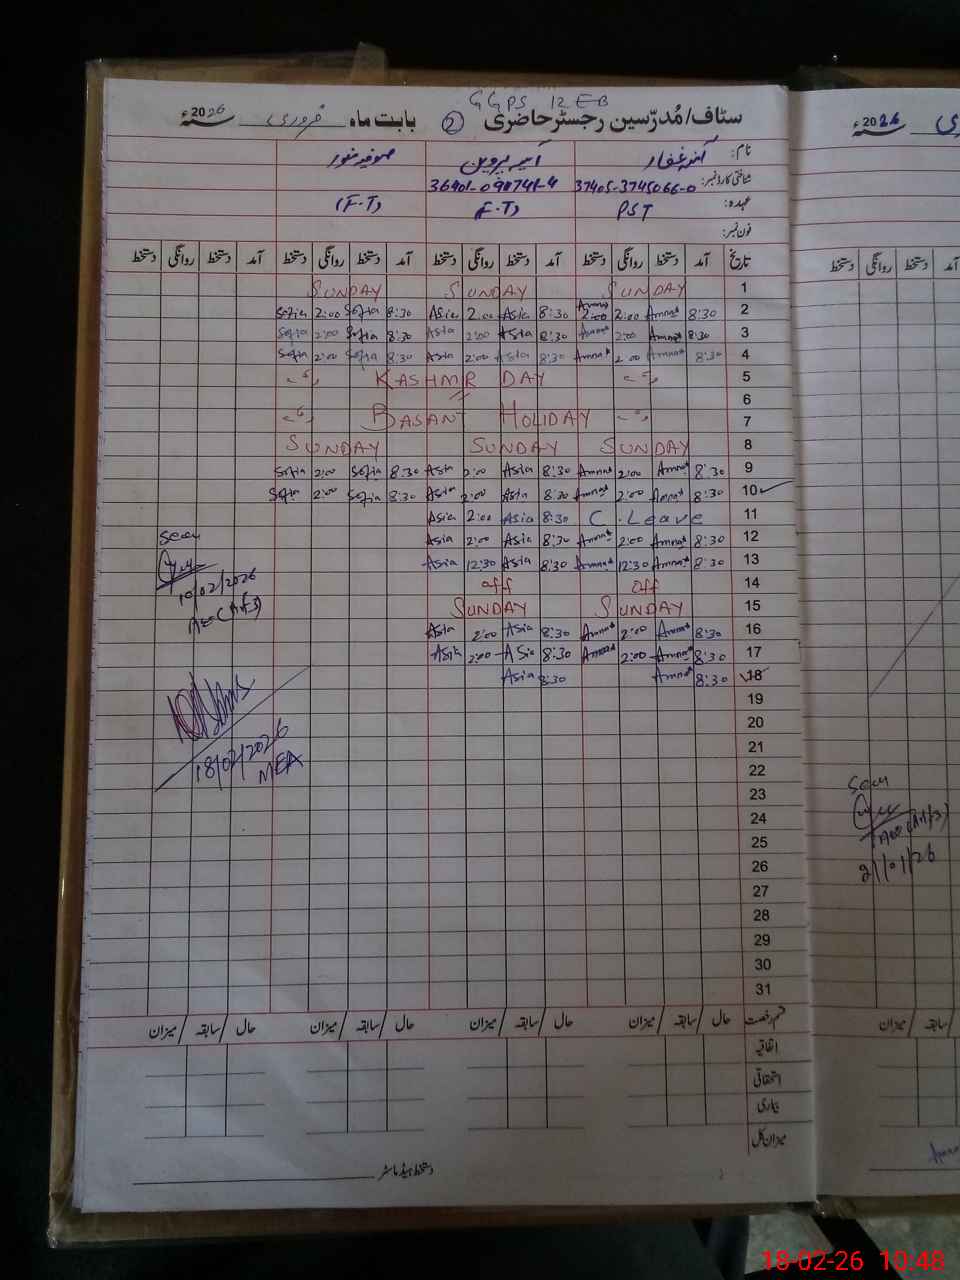 GGPS 12 EB
سٹاف/مُدرّسین رجسٹر حاضری 2 بابت ماہ فروری 2026ء
نام: آمنہ غفار آسیہ پروین صوفیہ منور
شناختی کارڈ نمبر: 37405-3745066-0
عہدہ: PST (E.T) (E.T)
فون نمبر:
تاریخ آمد دستخط روانگی دستخط آمد دستخط روانگی دستخط آمد دستخط روانگی دستخط آمد دستخط روانگی دستخط
SUNDAY SUNDAY SUNDAY 1
Sofia 2:00 Sofia 8:30 Asia 2:00 Asia 8:30 Amna 2:00 2:00 Amna 8:30 2
Sofia 2:00 Sofia 8:30 Asia 2:00 Asia 8:30 Amna 2:00 Amna 8:30 3
Sofia 2:00 Sofia 8:30 Asia 2:00 Asia 8:30 Amna 2:00 Amna 8:30 4
KASHMR DAY 5
6
BASANT HOLIDAY 7
SUNDAY SUNDAY SUNDAY 8
Sofia 2:00 Sofia 8:30 Asia 2:00 Asia 8:30 Amna 2:00 Amna 8:30 9
Sofia 2:00 Sofia 8:30 Asia 2:00 Asia 8:30 Amna 2:00 Amna 8:30 10
Asia 2:00 Asia 8:30 C. Leave 11
Asia 2:00 Asia 8:30 Amna 2:00 Amna 8:30 12
Asia 12:30 Asia 8:30 Amna 12:30 Amna 8:30 13
off off 14
SUNDAY SUNDAY 15
Asia 2:00 Asia 8:30 Amna 2:00 Amna 8:30 16
Asia 2:00 Asia 8:30 Amna 2:00 Amna 8:30 17
Asia 8:30 Amna 8:30 18
19
20
21
22
23
24
25
26
27
28
29
30
31
seen
10/02/2026
18/02/2026
MEA
قسم رخصت حال/سابقہ/میزان حال/سابقہ/میزان حال/سابقہ/میزان حال/سابقہ/میزان
اتفاقیہ
استحقاقی
بیماری
میزان کل
دستخط ہیڈ ماسٹر
2026ء
آمد دستخط روانگی دستخط
seen
21/01/26
سابقہ/میزان
18-02-26 10:48